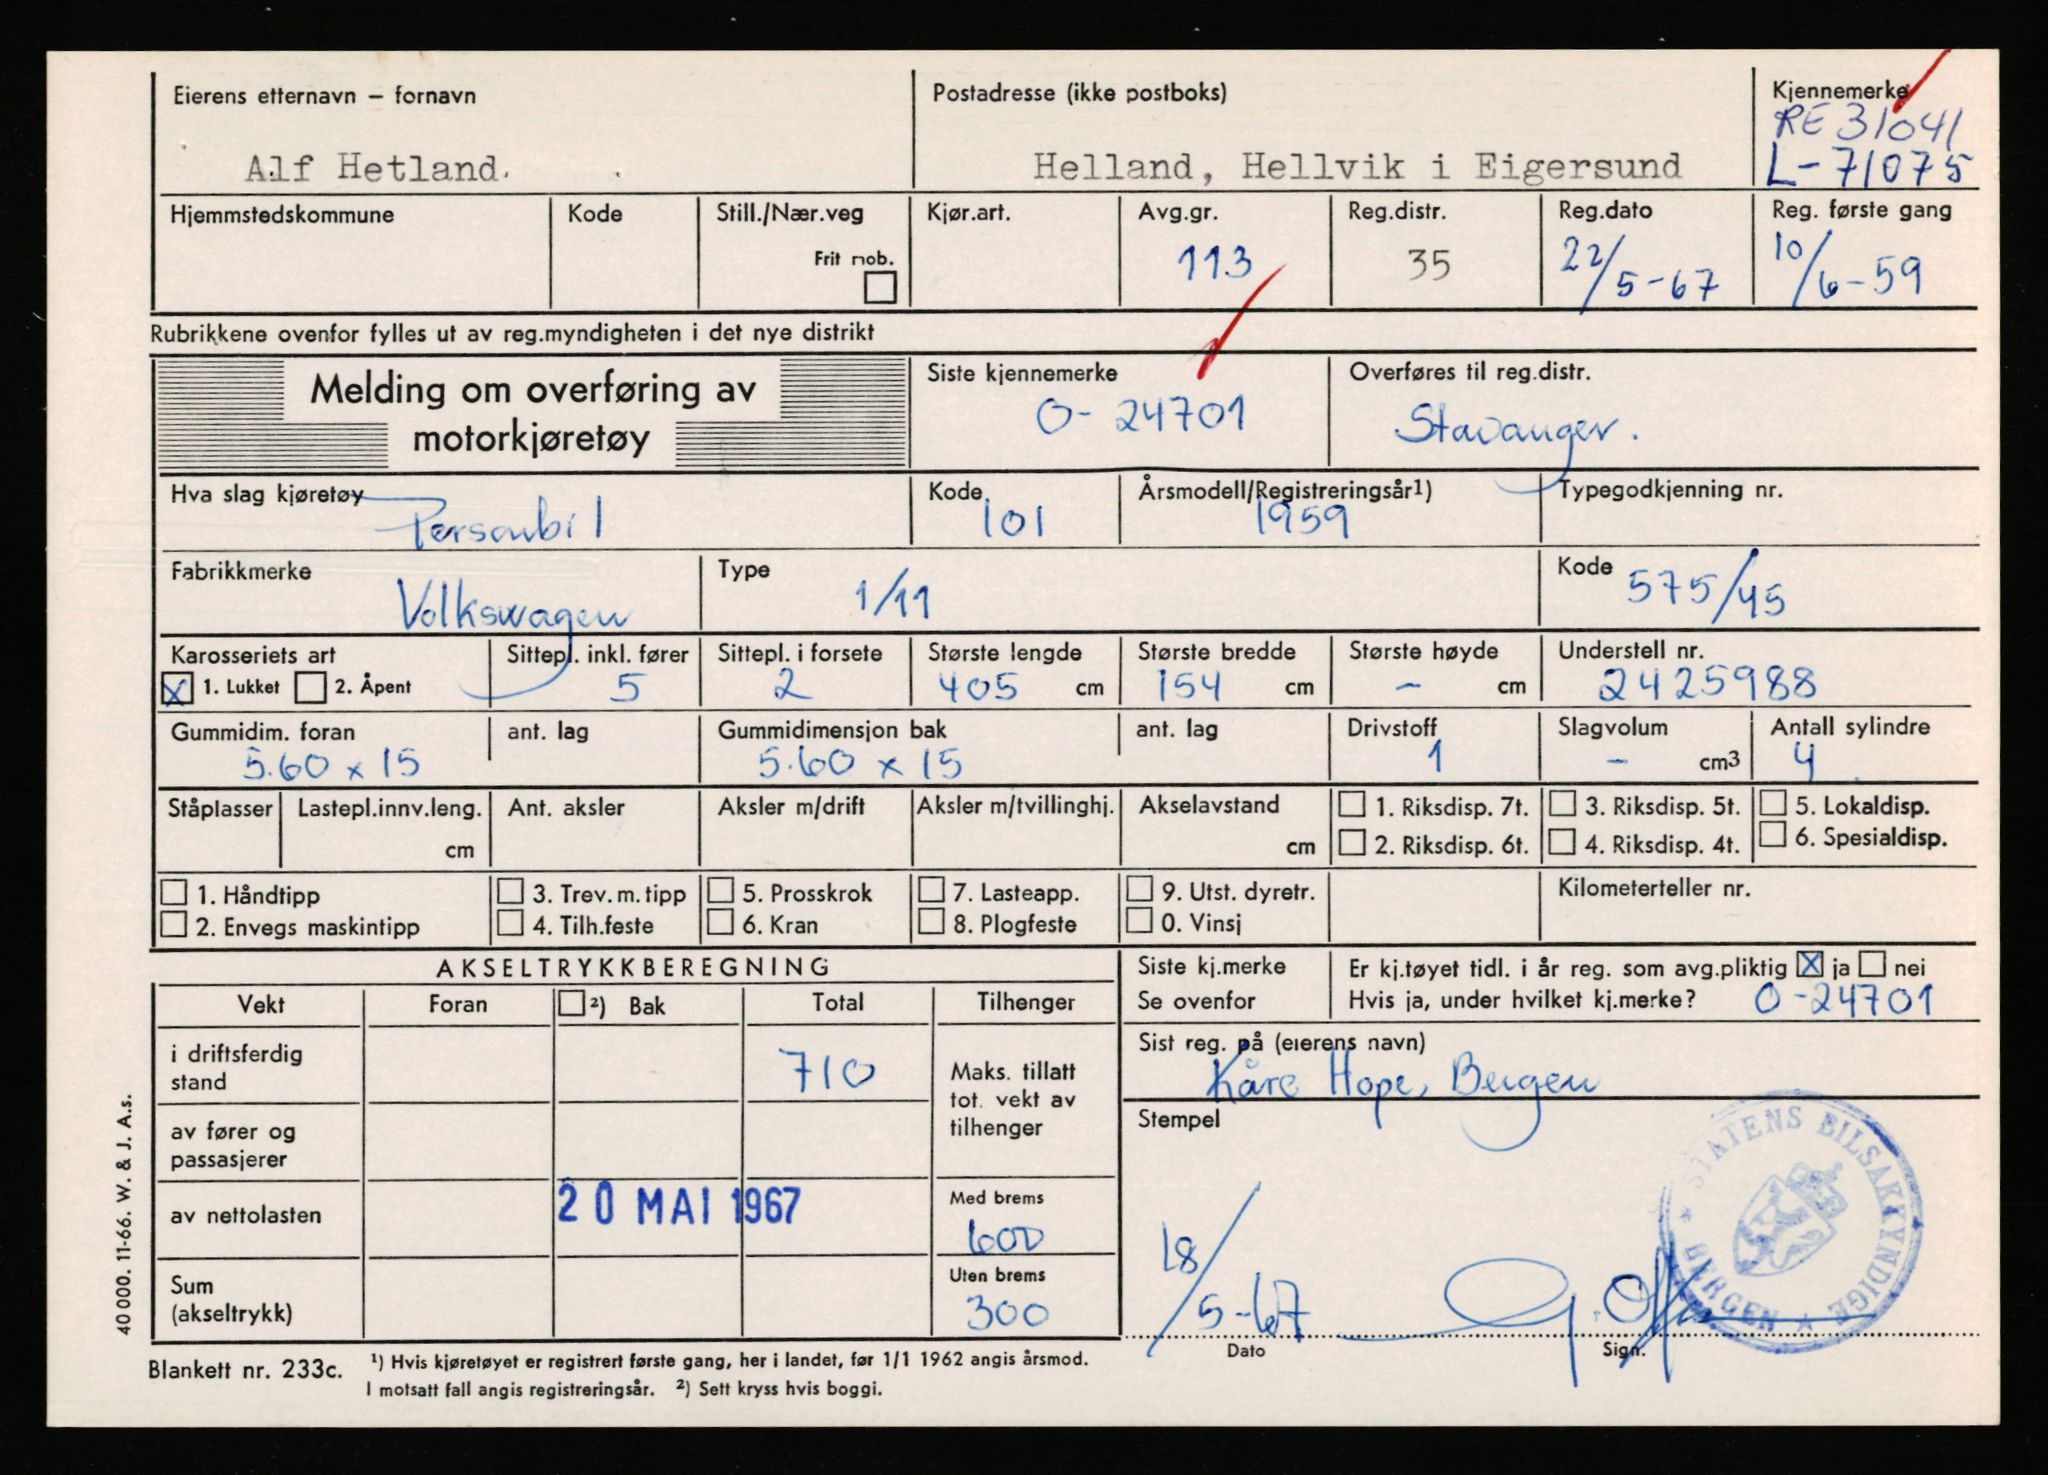 Eierens etternavn – fornavn
Alf Hetland.
Postadresse (ikke postboks)
Helland, Hellvik i Eigersund
Kjennemerke
RE 31041
L-71075
Hjemmstedskommune
Kode
Still./Nær.veg
Frit mob.
Kjør.art.
Avg.gr.
113
Reg.distr.
35
Reg.dato
22/5-67
Reg. første gang
10/6-59
Rubrikkene ovenfor fylles ut av reg.myndigheten i det nye distrikt
Melding om overføring av
motorkjøretøy
Siste kjennemerke
O- 24701
Overføres til reg.distr.
Stavanger.
Hva slag kjøretøy
Personbil
Kode
101
Årsmodell/Registreringsår1)
1959
Typegodkjenning nr.
Fabrikkmerke
Volkswagen
Type
1/11
Kode
575/45
Karosseriets art
X 1. Lukket 2. Åpent
Sittepl. inkl. fører
5
Sittepl. i forsete
2
Største lengde
405 cm
Største bredde
154 cm
Største høyde
– cm
Understell nr.
2425988
Gummidim. foran
5.60 x 15
ant. lag
Gummidimensjon bak
5.60 x 15
ant. lag
Drivstoff
1
Slagvolum
– cm3
Antall sylindre
4
Ståplasser
Lastepl.innv.leng.
cm
Ant. aksler
Aksler m/drift
Aksler m/tvillinghj.
Akselavstand
cm
1. Riksdisp. 7t.
2. Riksdisp. 6t.
3. Riksdisp. 5t.
4. Riksdisp. 4t.
5. Lokaldisp.
6. Spesialdisp.
1. Håndtipp
2. Envegs maskintipp
3. Trev. m. tipp
4. Tilh.feste
5. Prosskrok
6. Kran
7. Lasteapp.
8. Plogfeste
9. Utst. dyretr.
0. Vinsj
Kilometerteller nr.
AKSELTRYKKBEREGNING
Vekt
Foran
2) Bak
Total
Tilhenger
i driftsferdig
stand
710
Maks. tillatt
tot. vekt av
tilhenger
av fører og
passasjerer
av nettolasten
20 MAI 1967
Med brems
600
Sum
(akseltrykk)
Uten brems
300
Siste kj.merke
Se ovenfor
Er kj.tøyet tidl. i år reg. som avg.pliktig X ja nei
Hvis ja, under hvilket kj.merke? O-24701
Sist reg. på (eierens navn)
Kåre Hope, Bergen
Stempel
STATENS BILSAKKYNDIGE
* BERGEN *
18/5-67
Dato
Sign.
40 000. 11-66. W. & J. A.s.
Blankett nr. 233c.
1) Hvis kjøretøyet er registrert første gang, her i landet, før 1/1 1962 angis årsmod.
I motsatt fall angis registreringsår. 2) Sett kryss hvis boggi.